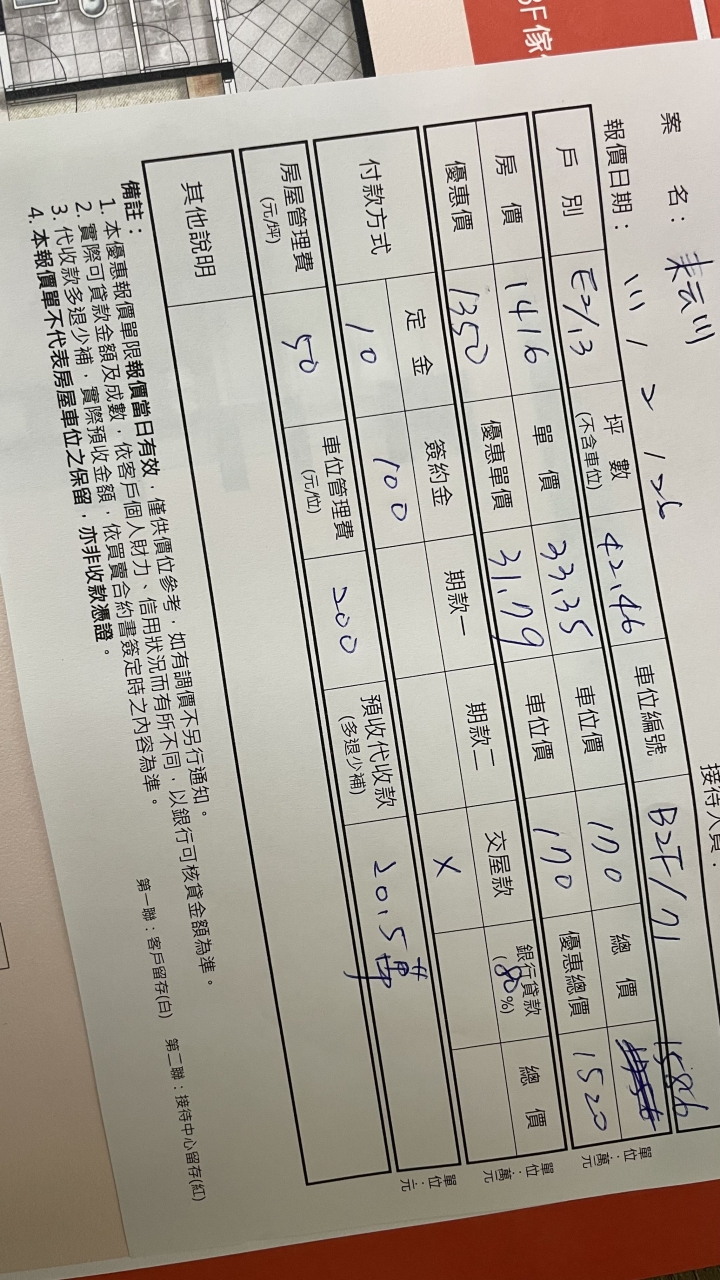 3F傢
案 名：
接待人員：
報價日期： 111 / 2 / 26
戶 別 E2/13 坪 數 (不含車位) 42.46 車位編號 B2F/71
房 價 1416 單 價 33.35 車位價 170 總 價 1586
優惠價 1350 優惠單價 31.79 車位價 170 優惠總價 1520
單位：萬元
付款方式 定 金 簽約金 期款一 期款二 交屋款 銀行貸款 (80%) 總 價
10 100 X
單位：萬元
房屋管理費 (元/坪) 50 車位管理費 (元/位) 200 預收代收款 (多退少補) 20.5萬
單位：元
其他說明
備註：
1. 本優惠報價單限報價當日有效，僅供價位參考，如有調價不另行通知。
2. 實際可貸款金額及成數，依客戶個人財力、信用狀況而有所不同，以銀行可核貸金額為準。
3. 代收款多退少補，實際預收金額，依買賣合約書簽定時之內容為準。
4. 本報價單不代表房屋車位之保留，亦非收款憑證。
第一聯：客戶留存(白) 第二聯：接待中心留存(紅)